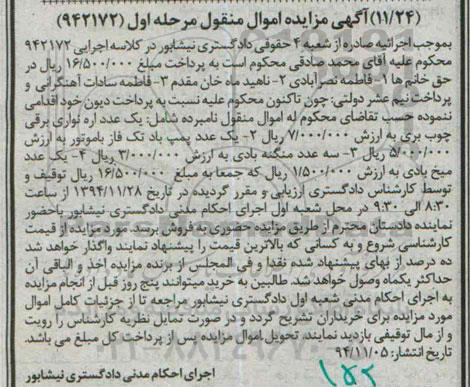 (۱۱/۲۴) آگهی مزایده اموال منقول مرحله اول (۹۴۲۱۷۲)
بموجب اجرائیه صادره از شعبه ۴ حقوقی دادگستری نیشابور در کلاسه اجرایی ۹۴۲۱۷۲
محکوم علیه آقای محمد صادقی محکوم است به پرداخت مبلغ ۱۶/۵۰۰/۰۰۰ ریال در
حق خانم ها ۱- فاطمه نصرآبادی ۲- ناهید ماه خان مقدم ۳- فاطمه سادات آهنگرانی و
پرداخت نیم عشر دولتی: چون تاکنون محکوم علیه نسبت به پرداخت دیون خود اقدامی
ننموده حسب تقاضای محکوم له اموال منقول نامبرده شامل: یک عدد اره نواری برقی
چوب بری به ارزش ۷/۰۰۰/۰۰۰ ریال ۲- یک عدد پمپ باد تک فاز باموتور به ارزش
۵/۰۰۰/۰۰۰ ریال ۳- سه عدد منگنه بادی به ارزش ۳/۰۰۰/۰۰۰ ریال ۴- یک عدد
میخ بادی به ارزش ۱/۵۰۰/۰۰۰ ریال که جمعا به مبلغ ۱۶/۵۰۰/۰۰۰ ریال توقیف و
توسط کارشناس دادگستری ارزیابی و مقرر گردیده در تاریخ ۱۳۹۴/۱۱/۲۸ از ساعت
۸:۳۰ الی ۹:۳۰ در محل شعبه اول اجرای احکام مدنی دادگستری نیشابور باحضور
نماینده دادستان محترم از طریق مزایده حضوری به فروش برسد. مورد مزایده از قیمت
کارشناسی شروع و به کسانی که بالاترین قیمت را پیشنهاد نمایند واگذار خواهد شد
ده درصد از بهای پیشنهاد شده نقدا و فی المجلس از برنده مزایده اخذ و الباقی آن
حداکثر یکماه وصول خواهد شد. طالبین به خرید میتوانند پنج روز قبل از انجام مزایده
به اجرای احکام مدنی شعبه اول دادگستری نیشابور مراجعه تا از جزئیات کامل اموال
مورد مزایده برای خریداران تشریح گردد و در صورت تمایل نظریه کارشناس را رویت
و از مال توقیفی بازدید نمایند. تحویل اموال مزایده پس از پرداخت کل مبلغ می باشد.
تاریخ انتشار: ۹۴/۱۱/۰۵
اجرای احکام مدنی دادگستری نیشابور